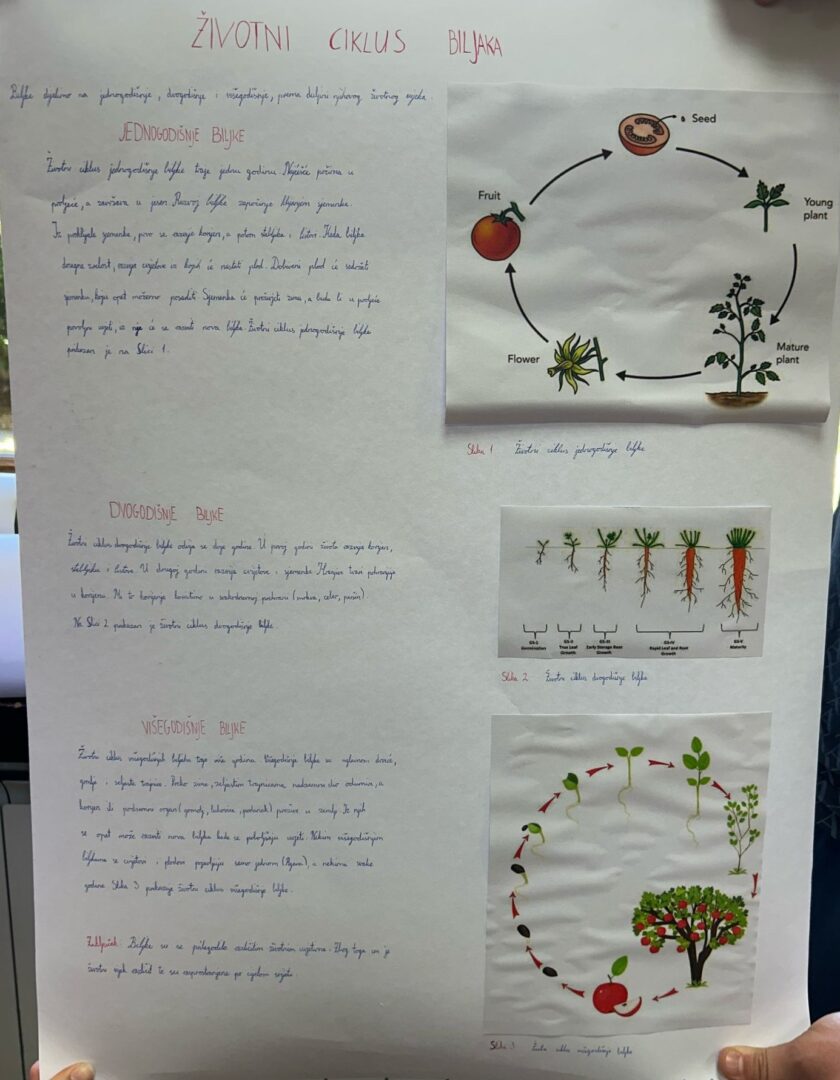 ŽIVOTNI CIKLUS BILJAKA
Biljke dijelimo na jednogodišnje, dvogodišnje i višegodišnje, prema duljini njihovog životnog vijeka.
JEDNOGODIŠNJE BILJKE
Životni ciklus jednogodišnje biljke traje jednu godinu. Najčešće počinje u
proljeće, a završava u jesen. Razvoj biljke započinje klijanjem sjemenke.
Iz proklijale sjemenke, prvo se razvije korijen, a potom stabljika i listovi. Kada biljka
dosegne zrelost, razvija cvjetove iz kojih će nastati plod. Dobiveni plod će sadržati
sjemenku, koju opet možemo posaditi. Sjemenka će preživjeti zimu, a budu li u proljeće
povoljni uvjeti, iz nje će se razviti nova biljka. Životni ciklus jednogodišnje biljke
prikazan je na Slici 1.
Seed
Young
plant
Mature
plant
Flower
Fruit
Slika 1 Životni ciklus jednogodišnje biljke
DVOGODIŠNJE BILJKE
Životni ciklus dvogodišnje biljke odvija se dvije godine. U prvoj godini života razvija korijen,
stabljiku i listove. U drugoj godini razvija cvjetove i sjemenke. Hranjive tvari pohranjuju
u korijenu. Mi to korijenje koristimo u svakodnevnoj prehrani (mrkva, celer, peršin)
Na Slici 2 prikazan je životni ciklus dvogodišnje biljke.
GS-I
Germination
GS-II
True Leaf
Growth
GS-III
Early Storage Root
Growth
GS-IV
Rapid Leaf and Root
Growth
GS-V
Maturity
Slika 2 Životni ciklus dvogodišnje biljke
VIŠEGODIŠNJE BILJKE
Životni ciklus višegodišnjih biljaka traje više godina. Višegodišnje biljke su uglavnom drveće,
grmlje i zeljaste trajnice. Preko zime, zeljastim trajnicama nadzemni dio odumire, a
korijen ili podzemni organ (gomolj, lukovica, podanak) prezimi u zemlji. Iz njih
se opet može razviti nova biljka kada se poboljšaju uvjeti. Nekim višegodišnjim
biljkama se cvjetovi i plodovi pojavljuju samo jednom, a nekima svake
godine. Slika 3 prikazuje životni ciklus višegodišnje biljke.
Zaključak: Biljke su se prilagodile različitim životnim uvjetima. Zbog toga im je
životni vijek različit te su rasprostranjene po cijelom svijetu.
Slika 3 ciklus višegodišnje biljke